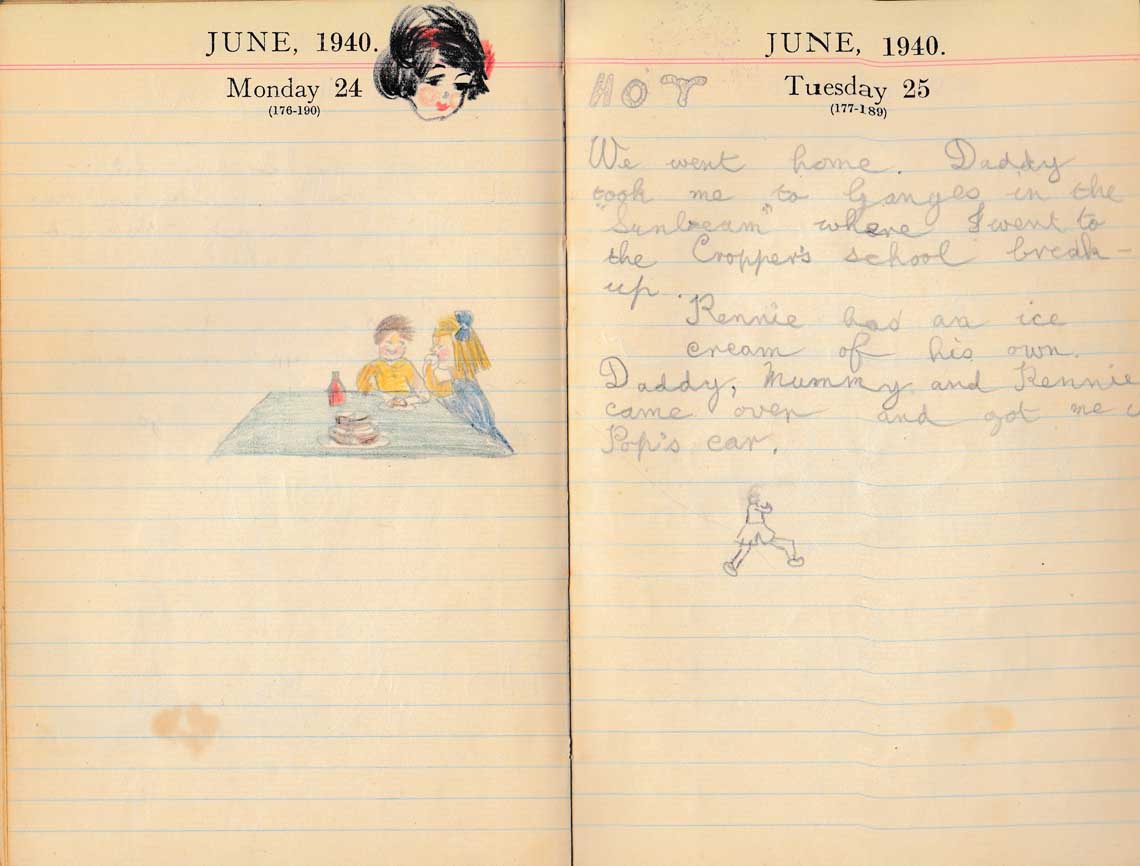 JUNE, 1940.
Monday 24
(176-190)
JUNE, 1940.
HOT
Tuesday 25
(177-189)
We went home. Daddy
took me to Ganges in the
"Sunbeam" where I went to
the Cropper's school break-
up.
Rennie had an ice
cream of his own.
Daddy, Mummy and Rennie
came over and got me
Pop's car.